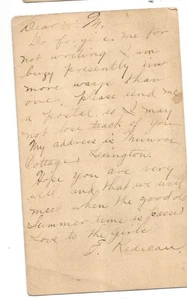 Dear M.
Do forgive me for
not writing I am
busy presently in
more ways than
one. Please send me
a postal so I may
not lose track of you
My address is Munroe
Cottage, Lexington.
Hope you are very
well and that we will
meet when the good
summer time is passed
Love to the girls